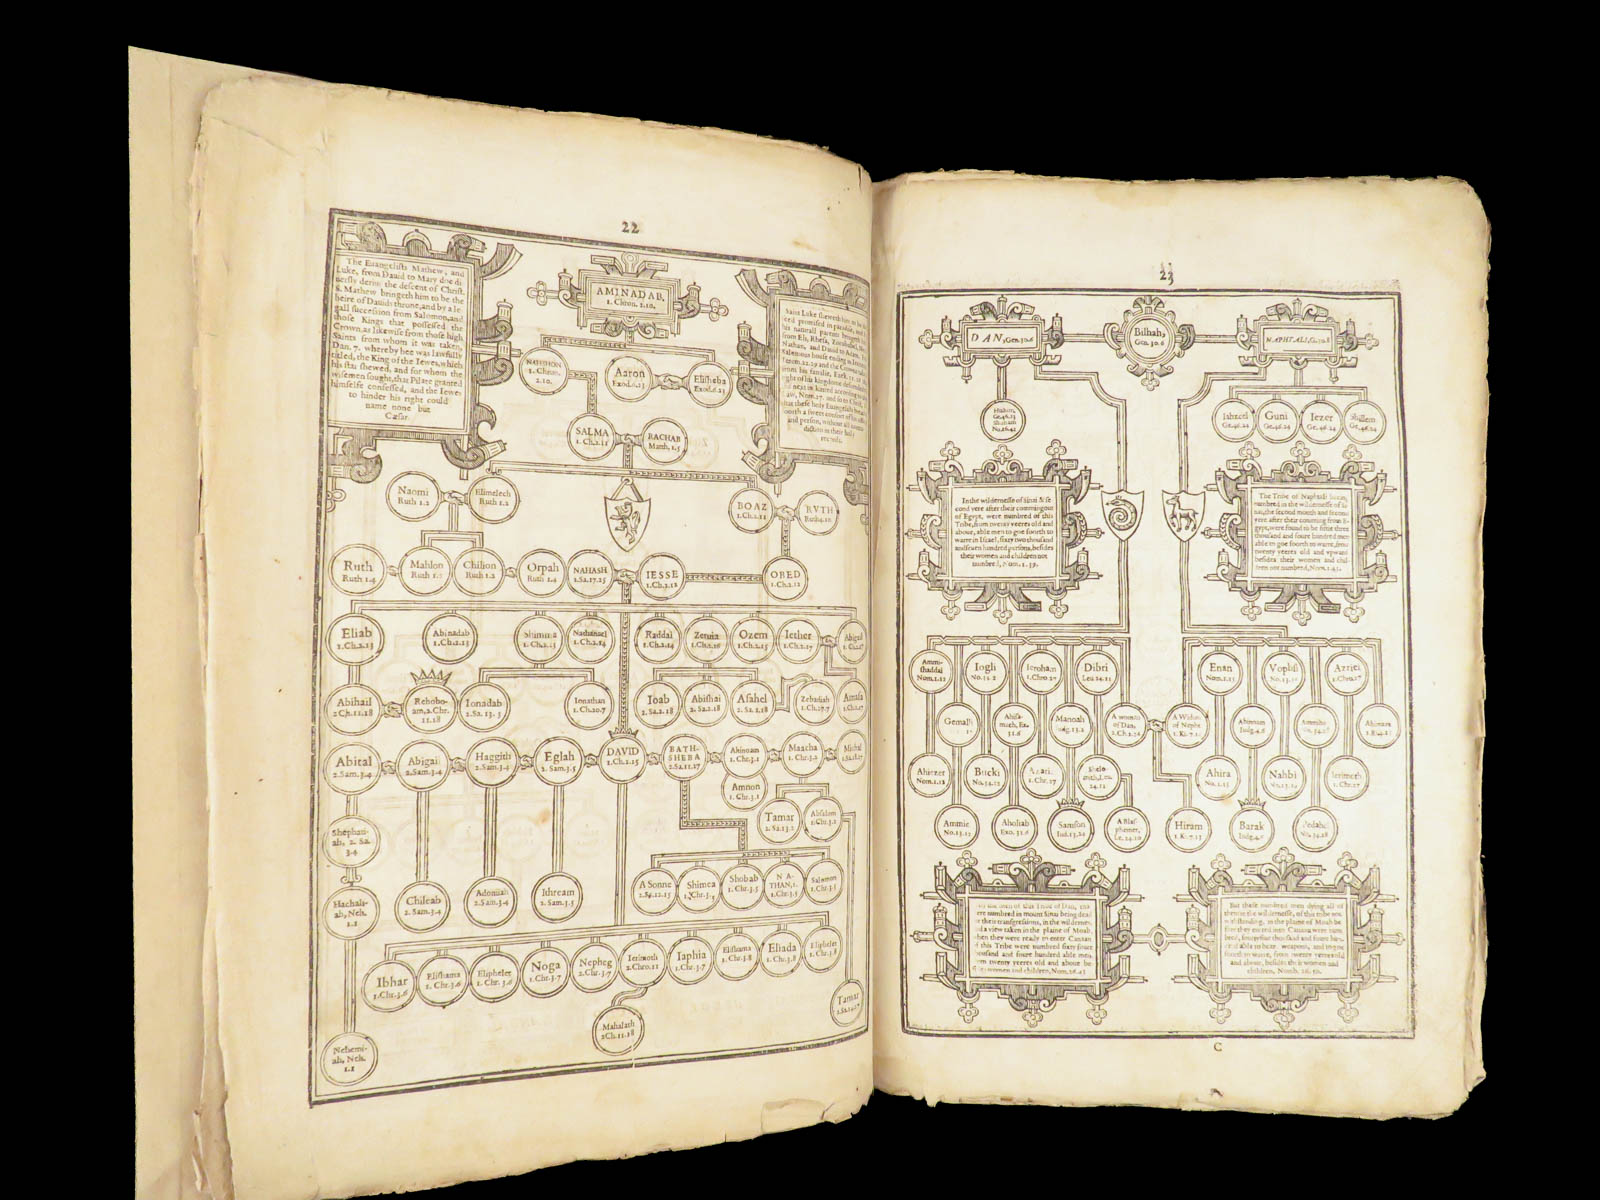 22
The Euangelists Mathew, and
Luke, from Dauid to Mary doe di-
uersly deriue the descent of Christ.
S. Mathew bringeth him to be the
heire of Dauids throne, and by a le-
gall succession from Salomon, and
those Kings that possessed the
Crown, as likewise from those high
Saints from whom it was taken,
Dan. 7. whereby hee was lawfully
titled, the King of the Iewes, which
his star shewed, and for whom the
wisemen sought, that Pilate granted
himselfe confessed, and the Iewes
to hinder his right could
name none but
Cæsar.
AMINADAB,
1. Chron. 2.10.
Saint Luke sheweth him to be
and person, without all
records.
NAHSHON
1. Chron.
2.10.
Aaron
Exod.6.23
Elisheba
Exod.6.23
SALMA
1.Ch.2.11
RACHAB
Matth.1.5
Naomi
Ruth 1.2
Elimelech
Ruth 1.2
BOAZ
1.Ch.2.11
RVTH
Ruth4.10
Ruth
Ruth 1.4
Mahlon
Ruth 1.2
Chilion
Ruth 1.2
Orpah
Ruth 1.4
NAHASH
2.Sa.17.25
IESSE
1.Ch.2.12
OBED
1.Ch.2.12
Eliab
1.Ch.2.13
Abinadab
1.Ch.2.13
Shimma
1.Ch.2.13
Nathanael
1.Ch.2.14
Raddai
1.Ch.2.14
Zeruia
1.Ch.2.16
Ozem
1.Ch.2.15
Iether
1.Ch.2.17
Abigail
1.Ch.2.17
Abihail
2 Ch.11.18
Rehobo-
am, 2.Chr.
11.18
Ionadab
2.Sa.13.3
Ionathan
1.Ch.20.7
Ioab
2.Sa.2.18
Abishai
2.Sa.2.18
Asahel
2.Sa.2.18
Zebadiah
1.Ch.27.7
Amasa
1.Ch.2.17
Abital
2.Sam.3.4
Abigail
2.Sam.3.4
Haggith
2.Sam.3.4
Eglah
2.Sam.3.5
DAVID
1.Ch.2.15
BATH-
SHEBA
2.Sa.11.27
Ahinoam
1.Chr.3.1
Maacha
1.Chr.3.2
Michal
Amnon
1.Chr.3.1
Tamar
2.Sa.13.2
Absalom
1.Chr.3.2
Shephati-
ah, 2. Sa.
3.4
Hachali-
ah, Neh.
1.1
Chileab
2.Sam.3.4
Adonijah
2.Sam.3.4
Ithream
2.Sam.3.5
A Sonne
2.Sa.12.15
Shimea
1.Chr.3.5
Shobab
1.Chr.3.5
NA-
THAN, 1.
Chr.3.5
Salomon
1.Chr.3.5
Ibhar
1.Chr.3.6
Elishama
1.Chr.3.6
Eliphelet
1.Chr.3.6
Noga
1.Chr.3.7
Nepheg
1.Chr.3.7
Ierimoth
2.Chro.11
Iaphia
1.Chr.3.7
Elishama
1.Chr.3.8
Eliada
1.Chr.3.8
Eliphelet
1.Chr.3.8
Mahalath
2Ch.11.18
Tamar
Nehemi-
ah, Neh.
1.1
23
DAN, Gen.30.6
Bilhah,
Gen. 30.6
NAPHTALI, G.30.8
Hushim,
Ge.46.23
Shuham
Nu.26.42
Iahzeel
Ge.46.24
Guni
Ge.46.24
Iezer
Ge.46.24
Shillem
Ge.46.24
In the wildernesse of Sinai & se
cond yere after their comming out
of Egypt, were numbred of this
Tribe, from twenty yeeres old and
above, able men to goe foorth to
warre in Israel, sixty two thousand
and seuen hundred persons, besides
their women and children not
numbred, Nom. 1.39.
The Tribe of Naphtali being
numbred in the wildernesse of Si-
nai, the second month and second
yere after their comming from E-
gypt, were found to be fiftie three
thousand and foure hundred men
able to goe foorth to warre, from
twenty yeeres old and vpward
besides their women and chil-
dren not numbred, Nom.1.43.
Ammi-
shaddai
Nom.1.12
Iogli
No.34.2
Ieroham
1.Chro.27
Dibri
Leu.24.11
Enan
Nom.1.15
Vophsi
No.13.14
Azriel
1.Chro.27
Gemalli
Ahisa-
mach, Ex.
31.6
Manoah
Iudg.13.2
A woman
of Dan,
2.Ch.2.14
A Widow
of Nepht
1.Ki.7.14
Abinoam
Iudg.4.6
Ahiezer
Nom.1.12
Bucki
No.34.22
1.Chr.27
Shelo-
mith, Leu.
24.11
Ahira
No.1.15
Nahbi
No.13.14
Ierimoth
1.Chr.27
Ammie
No.13.12
Aholiab
Exo.31.6
Samson
Iud.13.24
A Blas-
phemer,
Le.24.10
Hiram
1.Ki.7.13
Barak
Iudg.4.6
Pedahel
No.34.28
all the men of this Tribe of Dan, that
were numbred in mount Sinai being dead
for their transgressions, in the wildernes,
and a view taken in the plaine of Moab,
when they were ready to enter Canaan
of this Tribe were numbred sixty foure
thousand and foure hundred men,
from twenty yeeres old and aboue be
sides women and children, Num.26.43
But these numbred men dying all of
them in the wildernesse, of this tribe not
withstanding, in the plaine of Moab be
fore they entred into Canaan were num
bred, fourty fiue thousand and foure hun-
dred able to bear weapons, and to goe
foorth to warre, from twenty yeeres old
and aboue, besides their women and
children, Nomb. 26. 50.
C